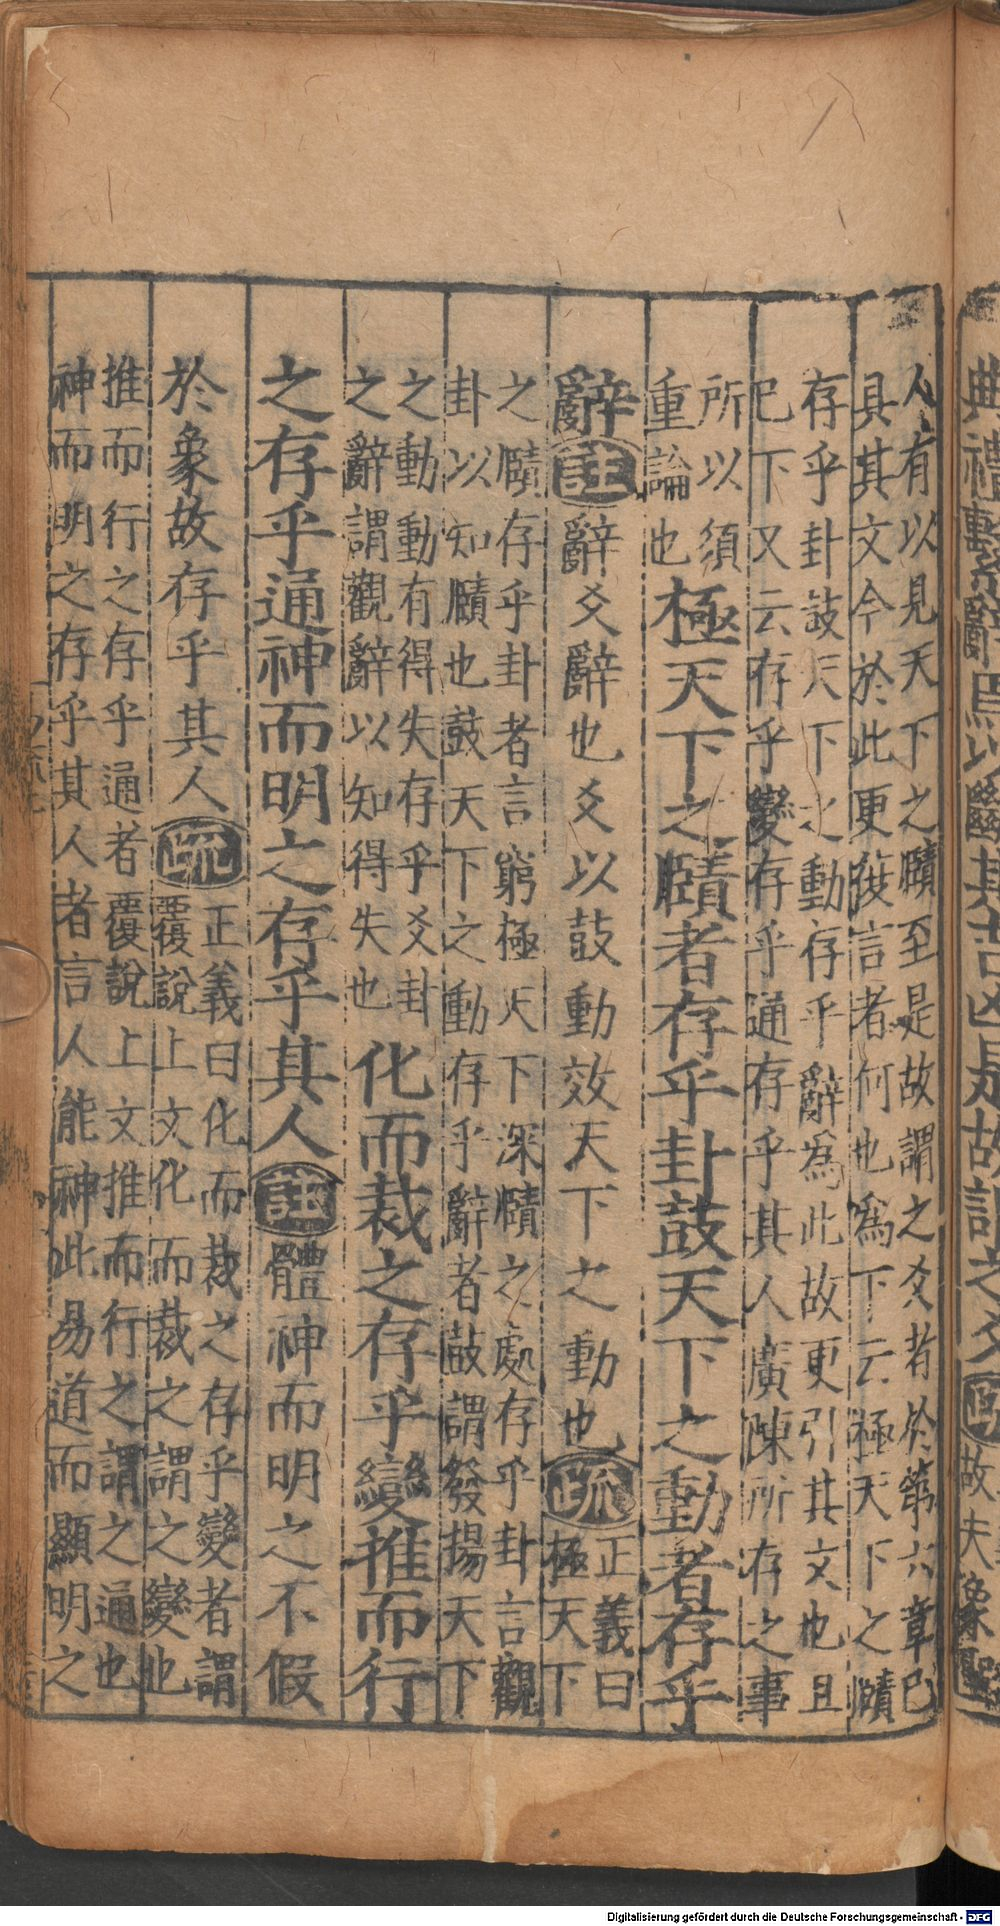 典禮繫辭焉以斷其吉凶是故謂之爻
故夫象聖
人有以見天下之賾至是故謂之爻者於第六章巳
具其文今於此更復言者何也為下云極天下之賾
存乎卦鼓天下之動存乎辭為此故更引其文也且
巳下又云存乎變存乎通存乎其人廣陳所存之事
所以須
重論也極天下之賾者存乎卦鼓天下之動者存乎
辭註辭爻辭也爻以鼓動效天下之動也疏正義曰
極天下
之賾存乎卦者言窮極天下深賾之處存乎卦言觀
卦以知賾也鼓天下之動存乎辭者鼓謂發揚天下
之動動有得失存乎爻卦
之辭謂觀辭以知得失也化而裁之存乎變推而行
之存乎通神而明之存乎其人註體神而明之不假
於象故存乎其人疏正義曰化而裁之存乎變者謂
覆說上文化而裁之謂之變也
推而行之存乎通者覆說上文推而行之謂之通也
神而明之存乎其人者言人能神此易道而顯明之
Digitalisierung gefördert durch die Deutsche Forschungsgemeinschaft - DFG